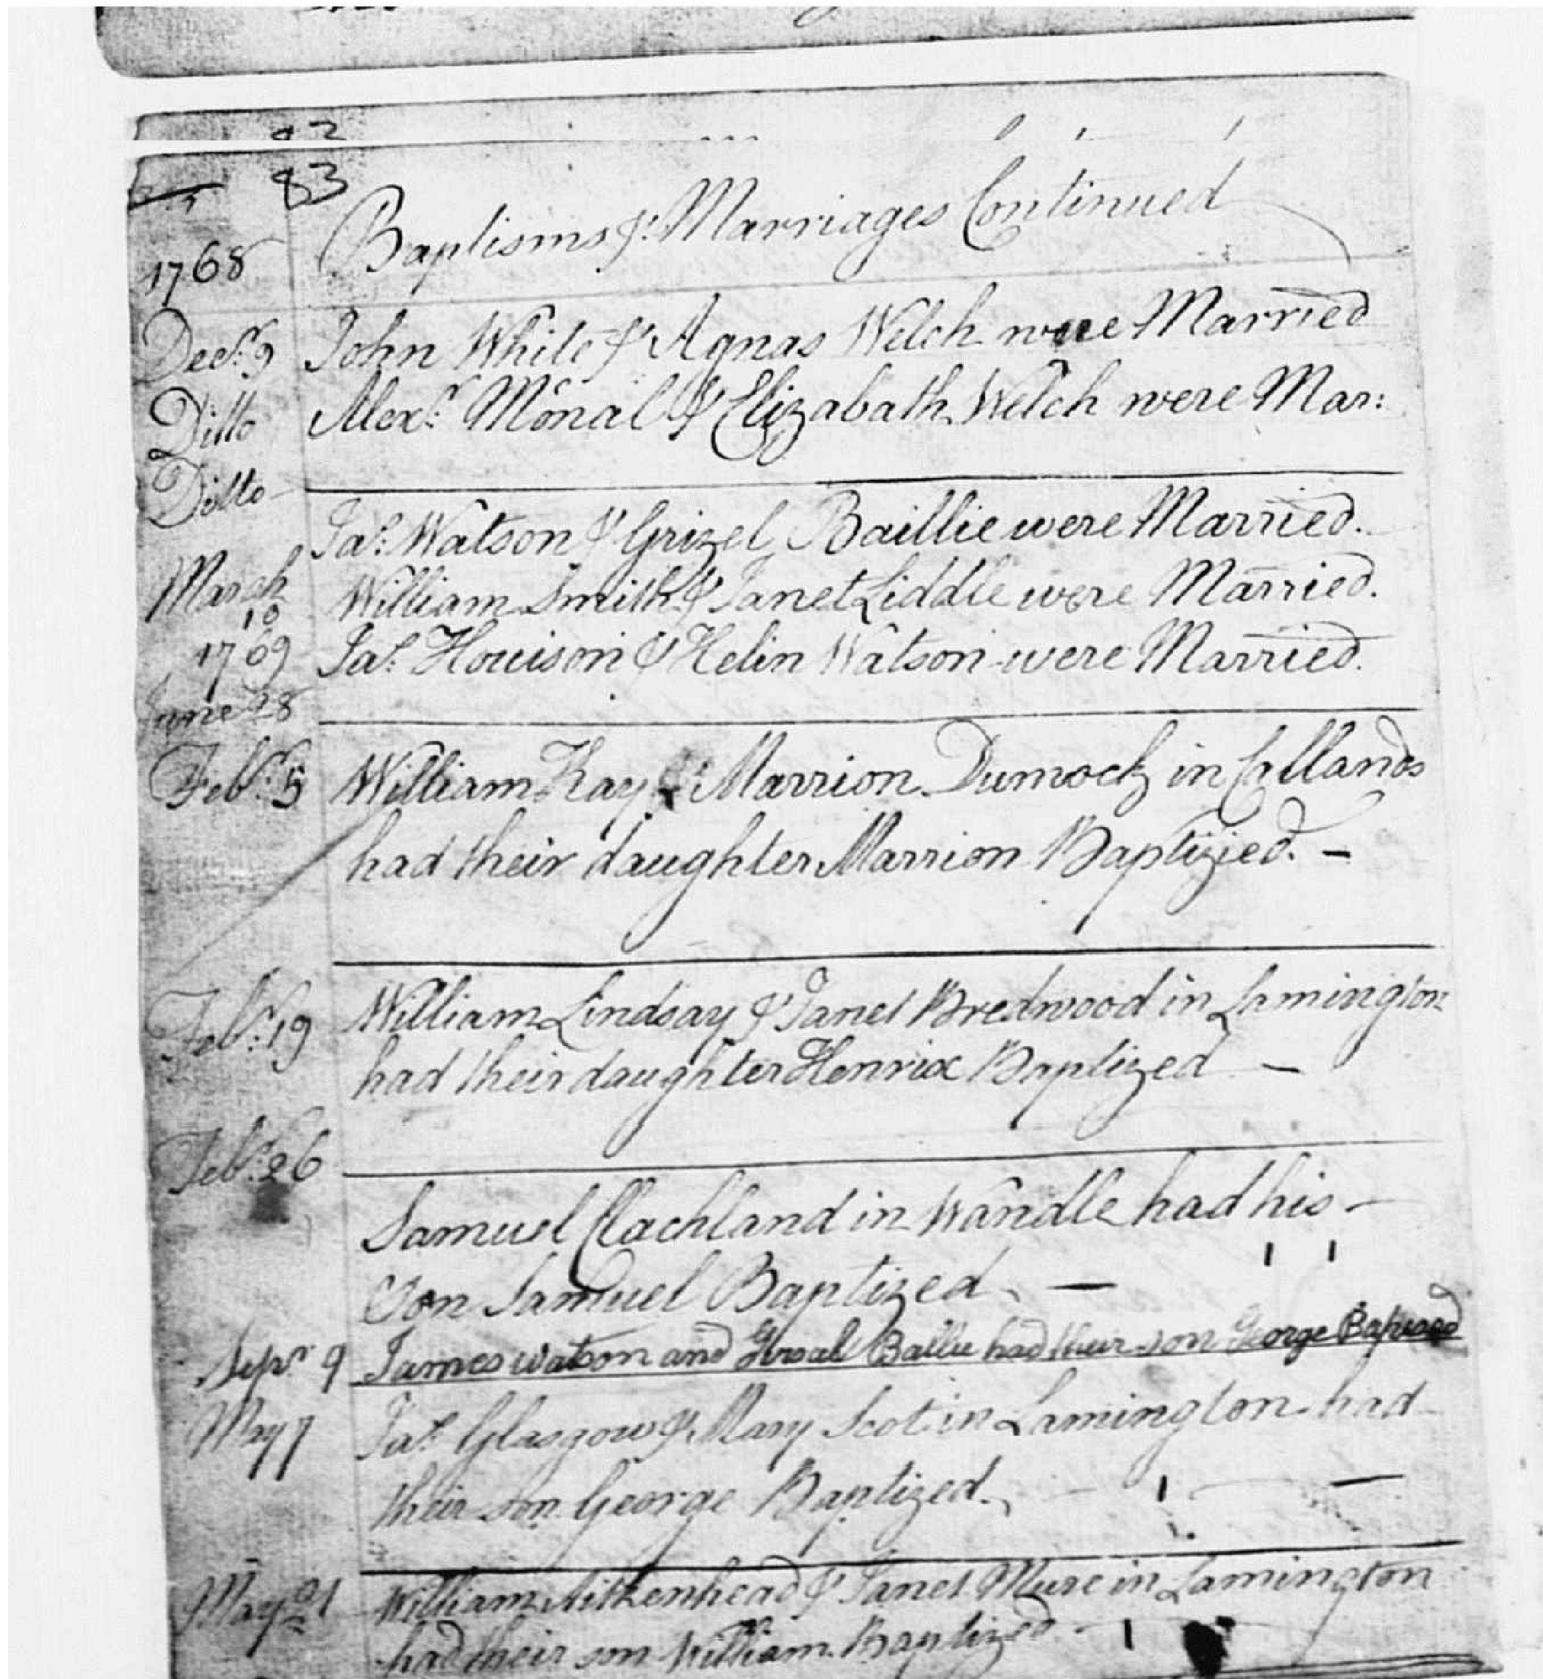 83
Baptisms & Marriages Continued
1768
Decr. 9 John White & Agnas Welch were Married
Ditto Alexr. McNal & Elizabath Welch were Mar:
Ditto
Jas. Watson & Grizel Baillie were Married.
March 10 William Smith & Janet Liddle were Married.
1769 Jas. Howison & Helin Watson were Married.
June 28
Febr. 5 William Kay & Marrion Dumock in Callands
had their daughter Marrion Baptizied. –
Febr. 19 William Lindsay & Janet Bredwood in Lamington
had their daughter Henrix Baptized –
Febr. 26
Samuel Clachland in Wandle had his –
Son Samuel Baptized. –
Sepr. 9 James Watson and Baillie had their son George
May 7 Jas. Glasgow & Mary Scot in Lamington had
their son George Baptized. –
May 21 William Aitkenhead & Janet Mure in Lamington
had their son William Baptized –